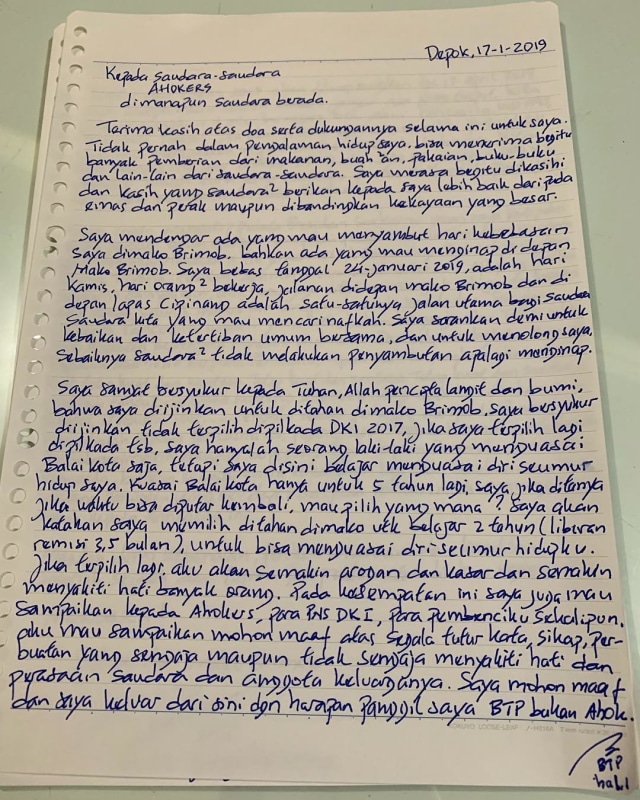 Depok, 17-1-2019
Kepada Saudara-saudara
AHOKERS
dimanapun saudara berada.
Tarima kasih atas doa serta dukungannya selama ini untuk saya.
Tidak pernah dalam pengalaman hidup saya. bisa menerima begitu
banyak pemberian dari makanan, buah an, pakaian, buku-buku
dan lain-lain dari saudara-saudara. Saya merasa begitu dikasihi
dan kasih yang saudara² berikan kepada saya lebih baik daripada
emas dan perak maupun dibandingkan kekayaan yang besar.
Saya mendengar ada yang mau menyambut hari kebebasan
saya dimako Brimob. bahkan ada yang mau menginap di depan
Mako Brimob. Saya bebas tanggal 24-januari 2019, adalah hari
Kamis, hari orang² bekerja, jalanan didepan mako Brimob dan di
depan lapas Cipinang adalah satu-satunya jalan utama bagi saudara
saudara kita yang mau mencari nafkah. Saya sarankan demi untuk
kebaikan dan ketertiban umum bersama, dan untuk menolong saya,
Sebaiknya saudara² tidak melakukan penyambutan apalagi menginap.
Saya sangat bersyukur kepada Tuhan, Allah pencipta langit dan bumi,
bahwa saya diijinkan untuk ditahan dimako Brimob. saya bersyukur
diijinkan tidak terpilih dipilkada DKI 2017, jika saya terpilih lagi
dipilkada tsb, saya hanyalah seorang laki-laki yang menguasai
Balai Kota saja, tetapi saya disini belajar menguasai diri seumur
hidup saya. Kuasai Balai kota hanya untuk 5 tahun lagi, saya jika ditanya
jika waktu bisa diputar kembali, mau pilih yang mana? Saya akan
katakan saya memilih ditahan dimako utk belajar 2 tahun (liburan
remisi 3,5 bulan), untuk bisa menguasai diri seumur hidupku.
Jika terpilih lagi, aku akan semakin arogan dan kasar dan semakin
menyakiti hati banyak orang. Pada kesempatan ini saya juga mau
sampaikan kepada Ahokers, para PNS DKI, para pembenciku sekalipun,
aku mau sampaikan mohon maaf atas segala tutur kata, sikap, per-
buatan yang sengaja maupun tidak sengaja menyakiti hati dan
perasaan saudara dan anggota keluarganya. Saya mohon maaf
dan saya keluar dari sini dgn harapan panggil saya BTP bukan Ahok.
BTP